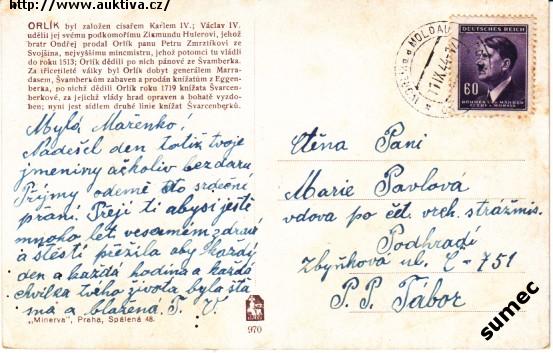 http://www.auktiva.cz/
ORLÍK byl založen císařem Karlem IV.; Václav IV.
udělil jej svému podkomořímu Zikmundu Hulerovi, jehož
bratr Ondřej prodal Orlík panu Petru Zmrzlíkovi ze
Svojšína, nejvyššímu mincmistru, jehož potomci tu vládli
do roku 1513; Orlík dědili po nich pánové ze Švamberka.
Za třicetileté války byl Orlík dobyt generálem Marra-
dasem, Švamberkům zabaven a prodán knížatům z Eggen-
berka, po nichž dědili Orlík roku 1719 knížata Švarcen-
berkové, za jejichž vlády hrad opraven a bohatě vyzdo-
ben; nyní jest sídlem druhé linie knížat Švarcenberků.
Mylá Mařenko!
Nadešel den totiž tvoje
jmeniny ačkoliv bez daru
Příjmy odemě sto srdeční
přaní. Přeji ti abysi ještě
mnoho let veselém zdraví
a stěstí přežila aby každý
den a každá hodina a každá
chvilka tvého života byla šťa
sna a blažená. T. V.
„Minerva", Praha, Spálená 48.
970
MOLDAU
DEUTSCHES REICH
60
BÖHMEN U. MÄHREN
ČECHY A MORAVA
Ctěna Pani
Marie Pavlová
vdova po čet. vrch. strážmis.
Podhradí
Zbyňkova ul. Č-751
P. P. Tábor
sumec